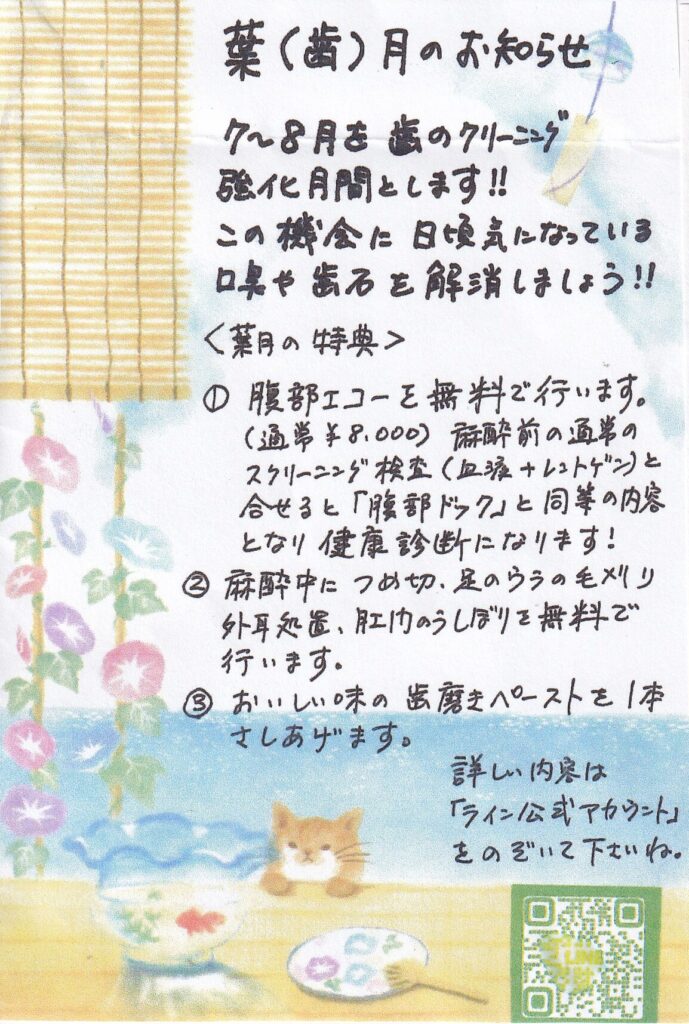 葉(歯)月のお知らせ
7〜8月を歯のクリーニング
強化月間とします!!
この機会に日頃気になっている
口臭や歯石を解消しましょう!!
<葉月の特典>
① 腹部エコーを無料で行います。
(通常¥8.000) 麻酔前の通常の
スクリーニング検査(血液+レントゲン)と
合せると「腹部ドック」と同等の内容
となり健康診断になります!
② 麻酔中に つめ切、足のウラの毛メリリ
外耳処置、肛门のうしぼりを無料で
行います。
③ おいしい味の歯磨きペーストを1本
さしあげます。
詳しい内容は
「ライン公式アカウント」
をのぞいて下さいね。
LINE